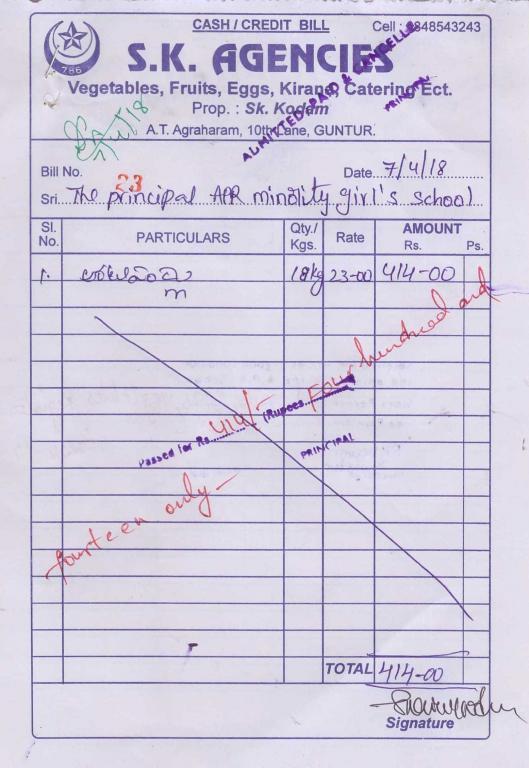 CASH / CREDIT BILL
Cell : 9848543243
786
S.K. AGENCIES
Vegetables, Fruits, Eggs, Kirana, Catering Ect.
Prop. : Sk. Kodam
A.T. Agraharam, 10th Lane, GUNTUR.
ADMITTED PAID & CANCELLED
PRINCIPAL
7/4/18
Bill No. 23
Date 7/4/18
Sri. The principal APR minolity girl's school
Sl. No. PARTICULARS Qty./ Kgs. Rate AMOUNT Rs. Ps.
1. 18kg 23-00 414-00
Passed for Rs. 414/- (Rupees Four hundred and
PRINCIPAL
fourteen only
TOTAL 414-00
Signature